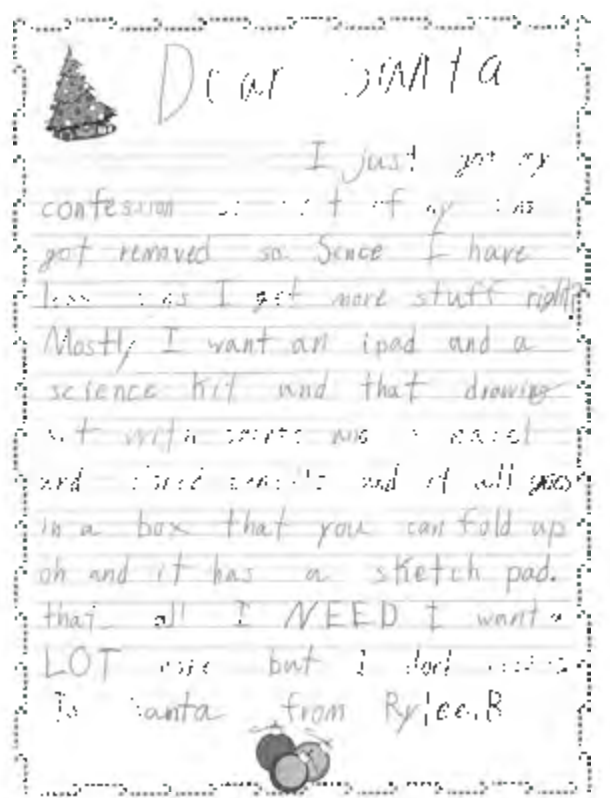 Dear Santa
I just got my
confession
got removed so Sence I have
less I get more stuff right?
Mostly I want an ipad and a
science Kit and that drawing
with
and and it all goes
in a box that you can fold up
oh and it has a sketch pad.
that all I NEED I want a
LOT more but I dont
To Santa from Rylee.R